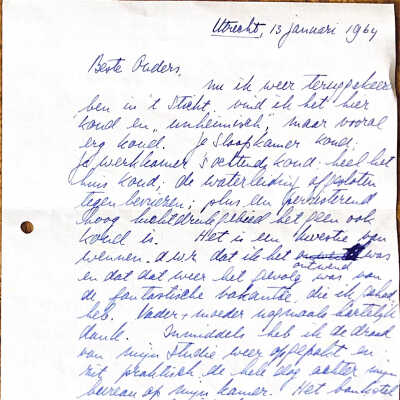 Utrecht, 13 januari 1964
Beste Ouders,
nu ik weer teruggekeer
ben in 't Sticht, vind ik het hier
koud en "unheimisch", maar vooral
erg koud. Je slaapkamer koud;
je werkkamer 's ochtends koud; heel het
huis koud; de waterleiding afgesloten
tegen bevriezen; plus een persisterend
hoog luchtdrukgebied het geen ook
koud is. Het is een kwestie van
wennen, d.w.z. dat ik het ontwend was
en dat dat weer het gevolg was van
de fantastische vakantie, die ik gehad
heb. Vader + moeder nogmaals hartelijk
dank. Inmiddels heb ik de draad
van mijn studie weer opgepakt en
zit praktisch de hele dag achter mijn
bureau op mijn kamer. Het